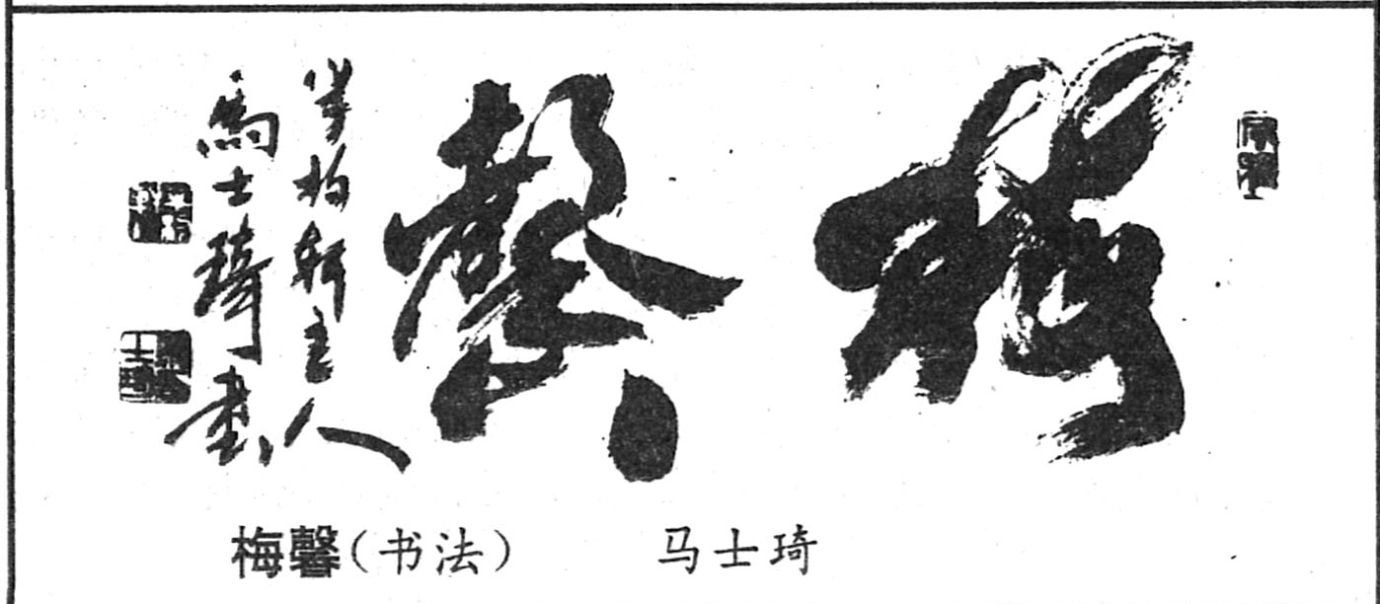 梅馨
柏軒主人
馬士琦書
梅馨(书法) 马士琦